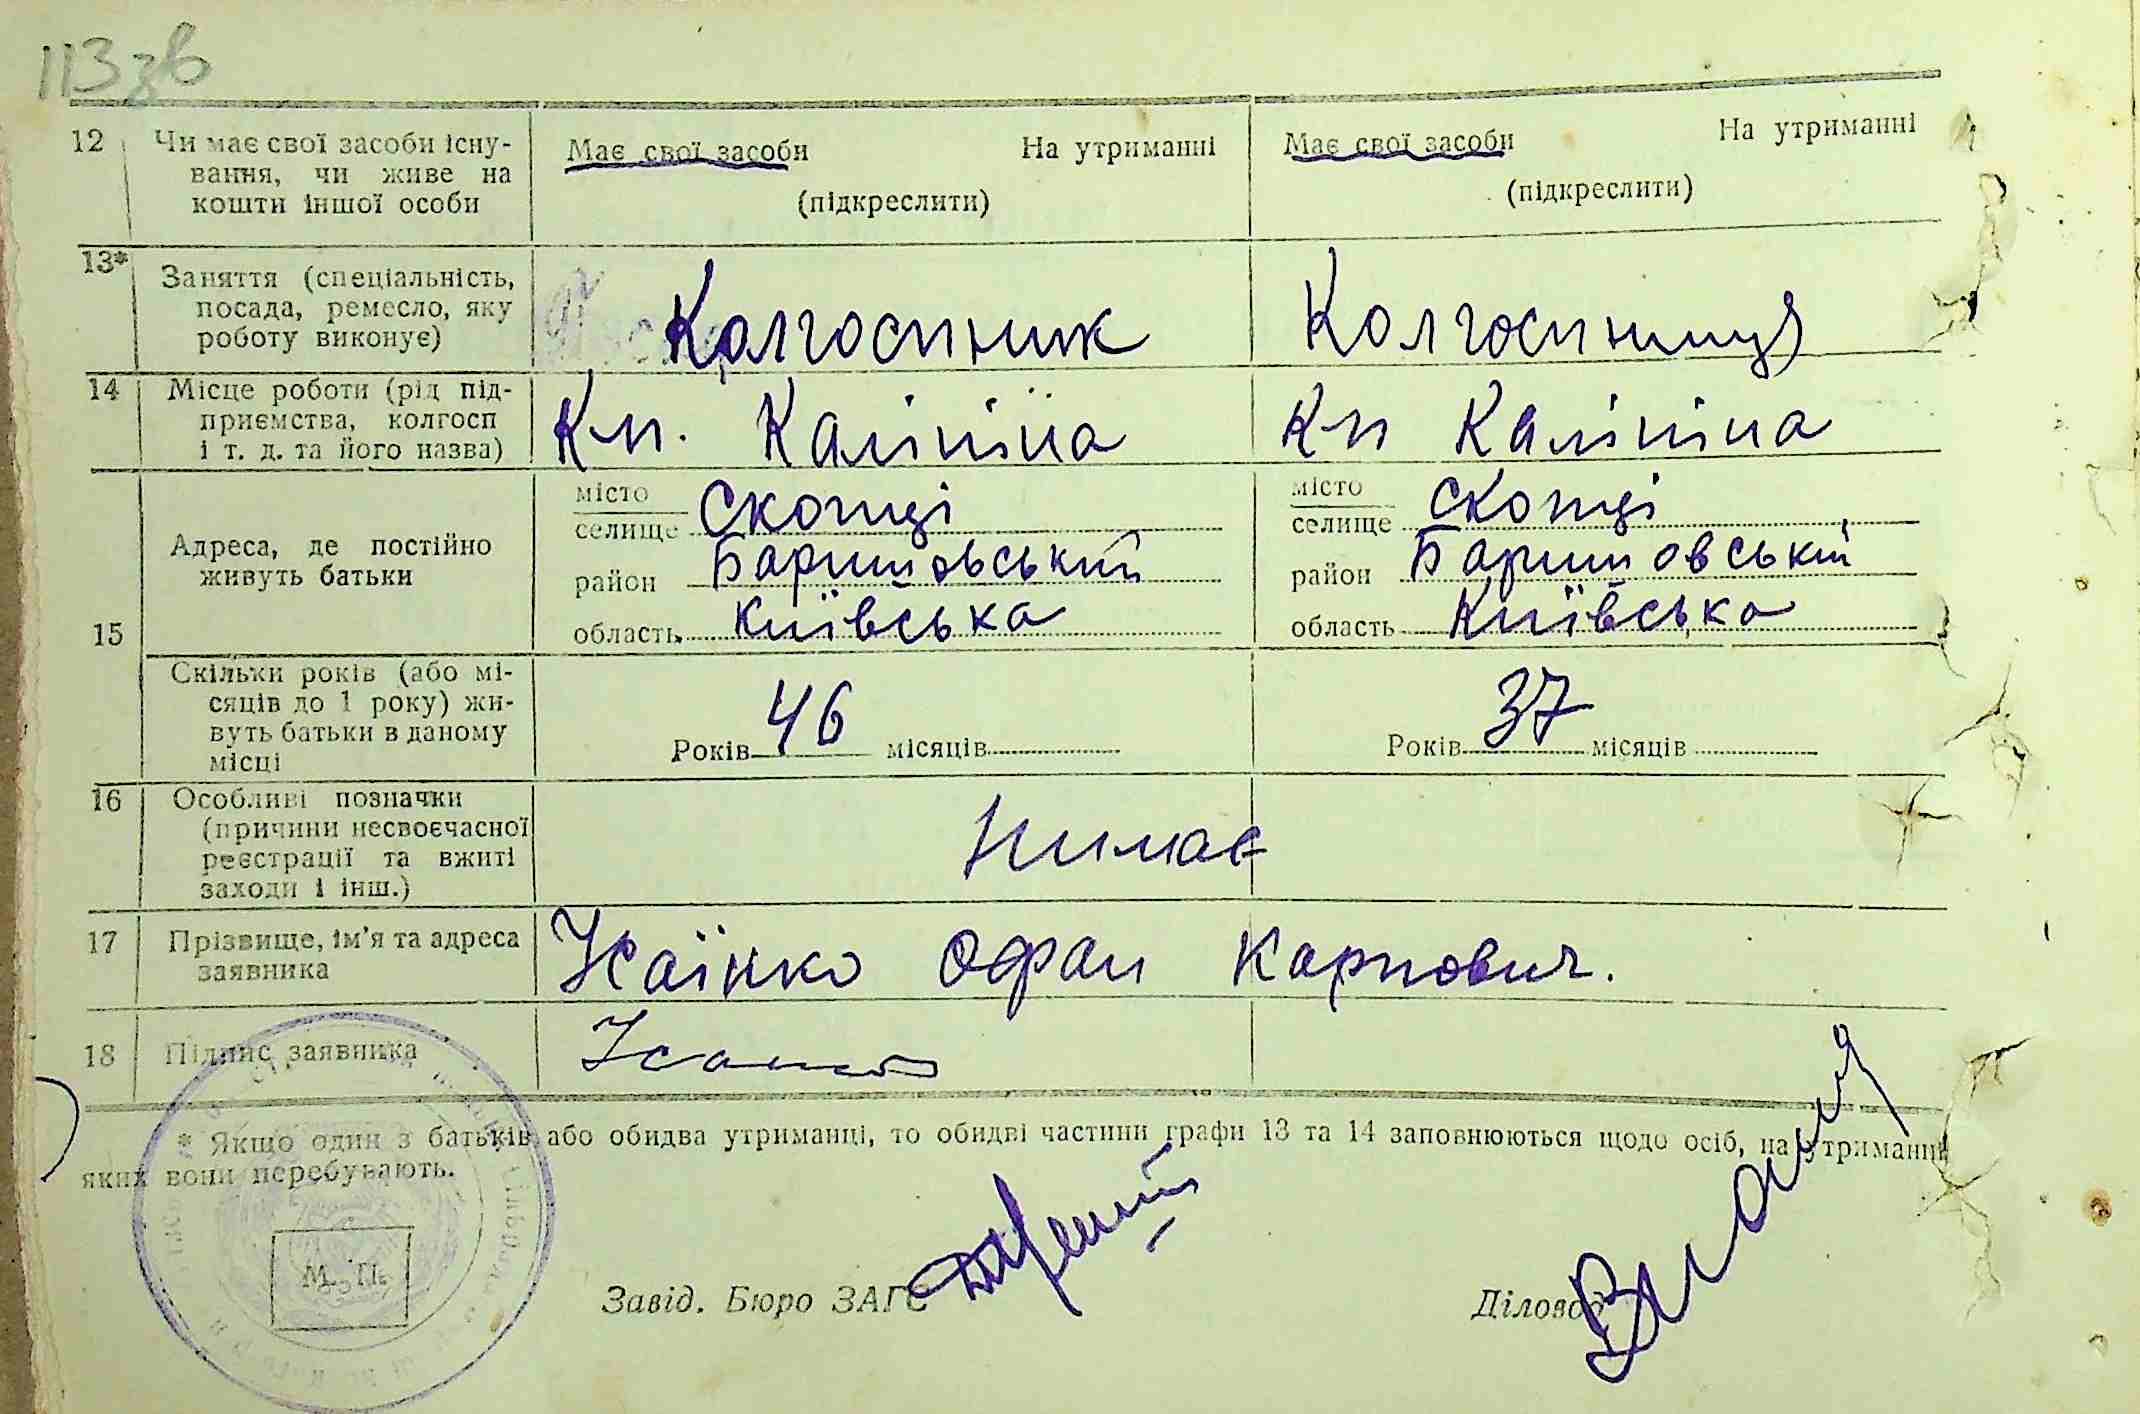 113 зв
12 Чи має свої засоби існу-
вання, чи живе на
кошти іншої особи
Має свої засоби На утриманні
(підкреслити)
Має свої засоби На утриманні
(підкреслити)
13* Заняття (спеціальність,
посада, ремесло, яку
роботу виконує)
Колгоспник
Колгоспниця
14 Місце роботи (рід під-
приємства, колгосп
і т. д. та його назва)
Км. Калініна
Км Калініна
15
Адреса, де постійно
живуть батьки
місто
селище Скопці
район Баришовський
область Київська
місто
селище Скопці
район Баришовський
область Київська
Скільки років (або мі-
сяців до 1 року) жи-
вуть батьки в даному
місці
Років 46 місяців
Років 37 місяців
16 Особливі позначки
(причини несвоєчасної
реєстрації та вжиті
заходи і інш.)
Нимає
17 Прізвище, ім'я та адреса
заявника
Усаїнко Офан Карпович.
18 Підпис заявника
* Якщо один з батьків або обидва утриманці, то обидві частини графи 13 та 14 заповнюються щодо осіб, на утриманні
яких вони перебувають.
М. П.
Завід. Бюро ЗАГС
Діловод